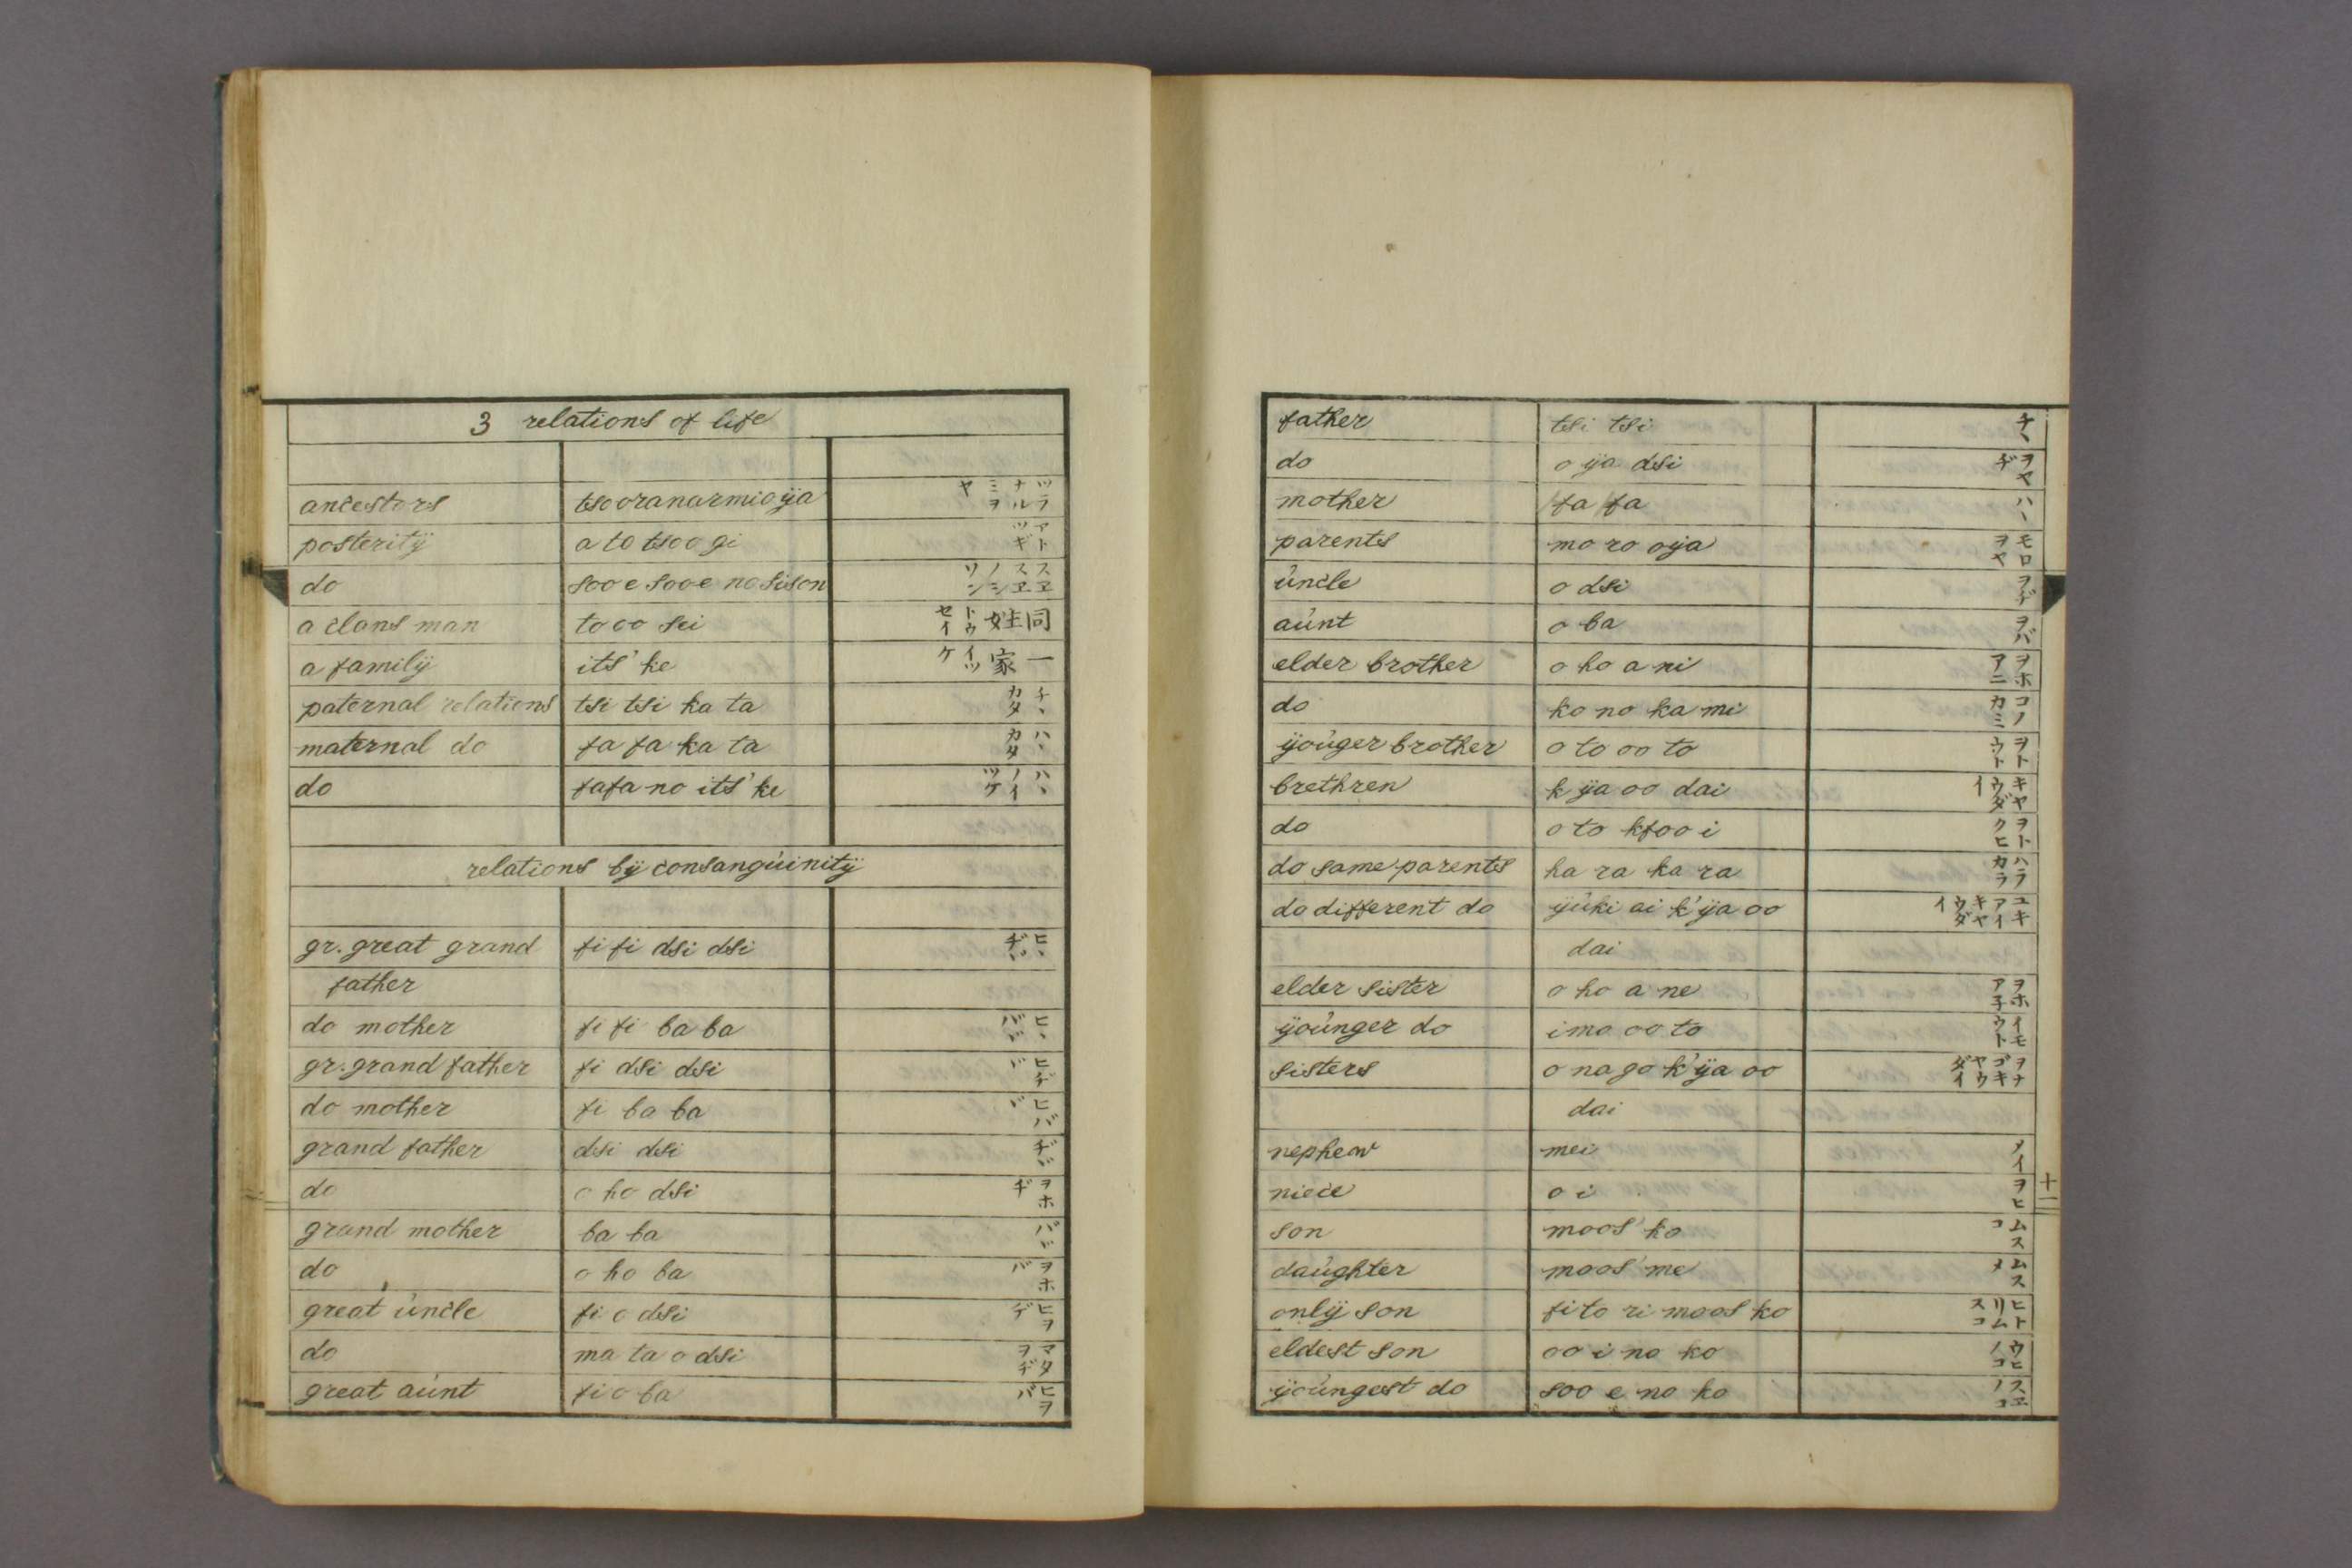 3 relations of life
ancestors tsooranarmioÿa ツラナルミヲヤ
posteritÿ a to tsoo gi アトツギ
do soo e soo e no sison スヱスヱノシソン
a clans man to oo sei 同姓 ドウセイ
a familÿ its' ke 一家 イツケ
paternal relations tsi tsi ka ta チヽカタ
maternal do fa fa ka ta ハヽカタ
do fafa no its' ke ハヽノイツケ
relations bÿ consangúinitÿ
gr. great grand fi fi dsi dsi ヒヽヂヾ
father
do mother fi fi ba ba ヒヽバヾ
gr. grand father fi dsi dsi ヒヂヾ
do mother fi ba ba ヒバヾ
grand father dsi dsi ヂヾ
do o ho dsi ヲホヂ
grand mother ba ba バヾ
do o ho ba ヲホバ
great úncle fi o dsi ヒヲヂ
do ma ta o dsi マタヲヂ
great aúnt fi o ba ヒヲバ
father tsi tsi チヽ
do o ÿa dsi ヲヤヂ
mother fa fa ハヽ
parents mo ro oÿa モロヲヤ
úncle o dsi ヲヂ
aúnt o ba ヲバ
elder brother o ho a ni ヲホアニ
do ko no ka mi コノカミ
ÿoúger brother o to oo to ヲトウト
brethren k ÿa oo dai キヤウダイ
do o to kfoo i ヲトクヒ
do same parents ha ra ka ra ハラカラ
do different do ÿúki ai k'ÿa oo ユキアイキヤウダイ
dai
elder sister o ho a ne ヲホア子
ÿoúnger do imo oo to イモウト
sisters o na go k'ÿa oo ヲナゴキヤウダイ
dai
nephew mei メイ
niece o i ヲヒ
son moos' ko ムスコ
daúghter moos' me ムスメ
onlÿ son fito ri moos ko ヒトリムスコ
eldest son oo i no ko ウヒノコ
ÿoúngest do soo e no ko スヱノコ
十一